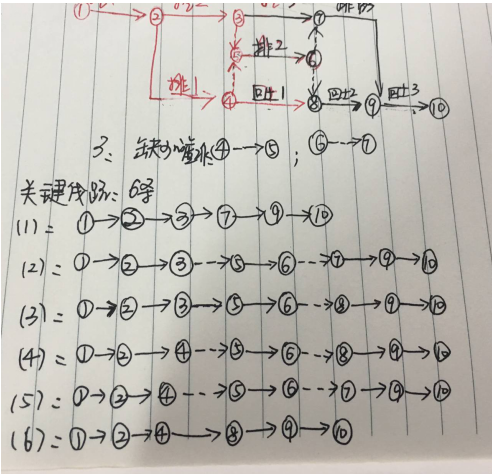 ① ② ③ ⑦
⑤ 排2 ⑥
排1 ④ 回土1 ⑧ 回土2 ⑨ 回土3 ⑩
3: 缺少 ④-->⑤; ⑥-->⑦
关键线路: 6条
(1)= ①→②→③→⑦→⑨→⑩
(2)= ①→②→③-->⑤→⑥-->⑦→⑨→⑩
(3)= ①→②→③-->⑤→⑥-->⑧→⑨→⑩
(4)= ①→②→④-->⑤→⑥-->⑧→⑨→⑩
(5)= ①→②→④-->⑤→⑥-->⑦→⑨→⑩
(6)= ①→②→④→⑧→⑨→⑩